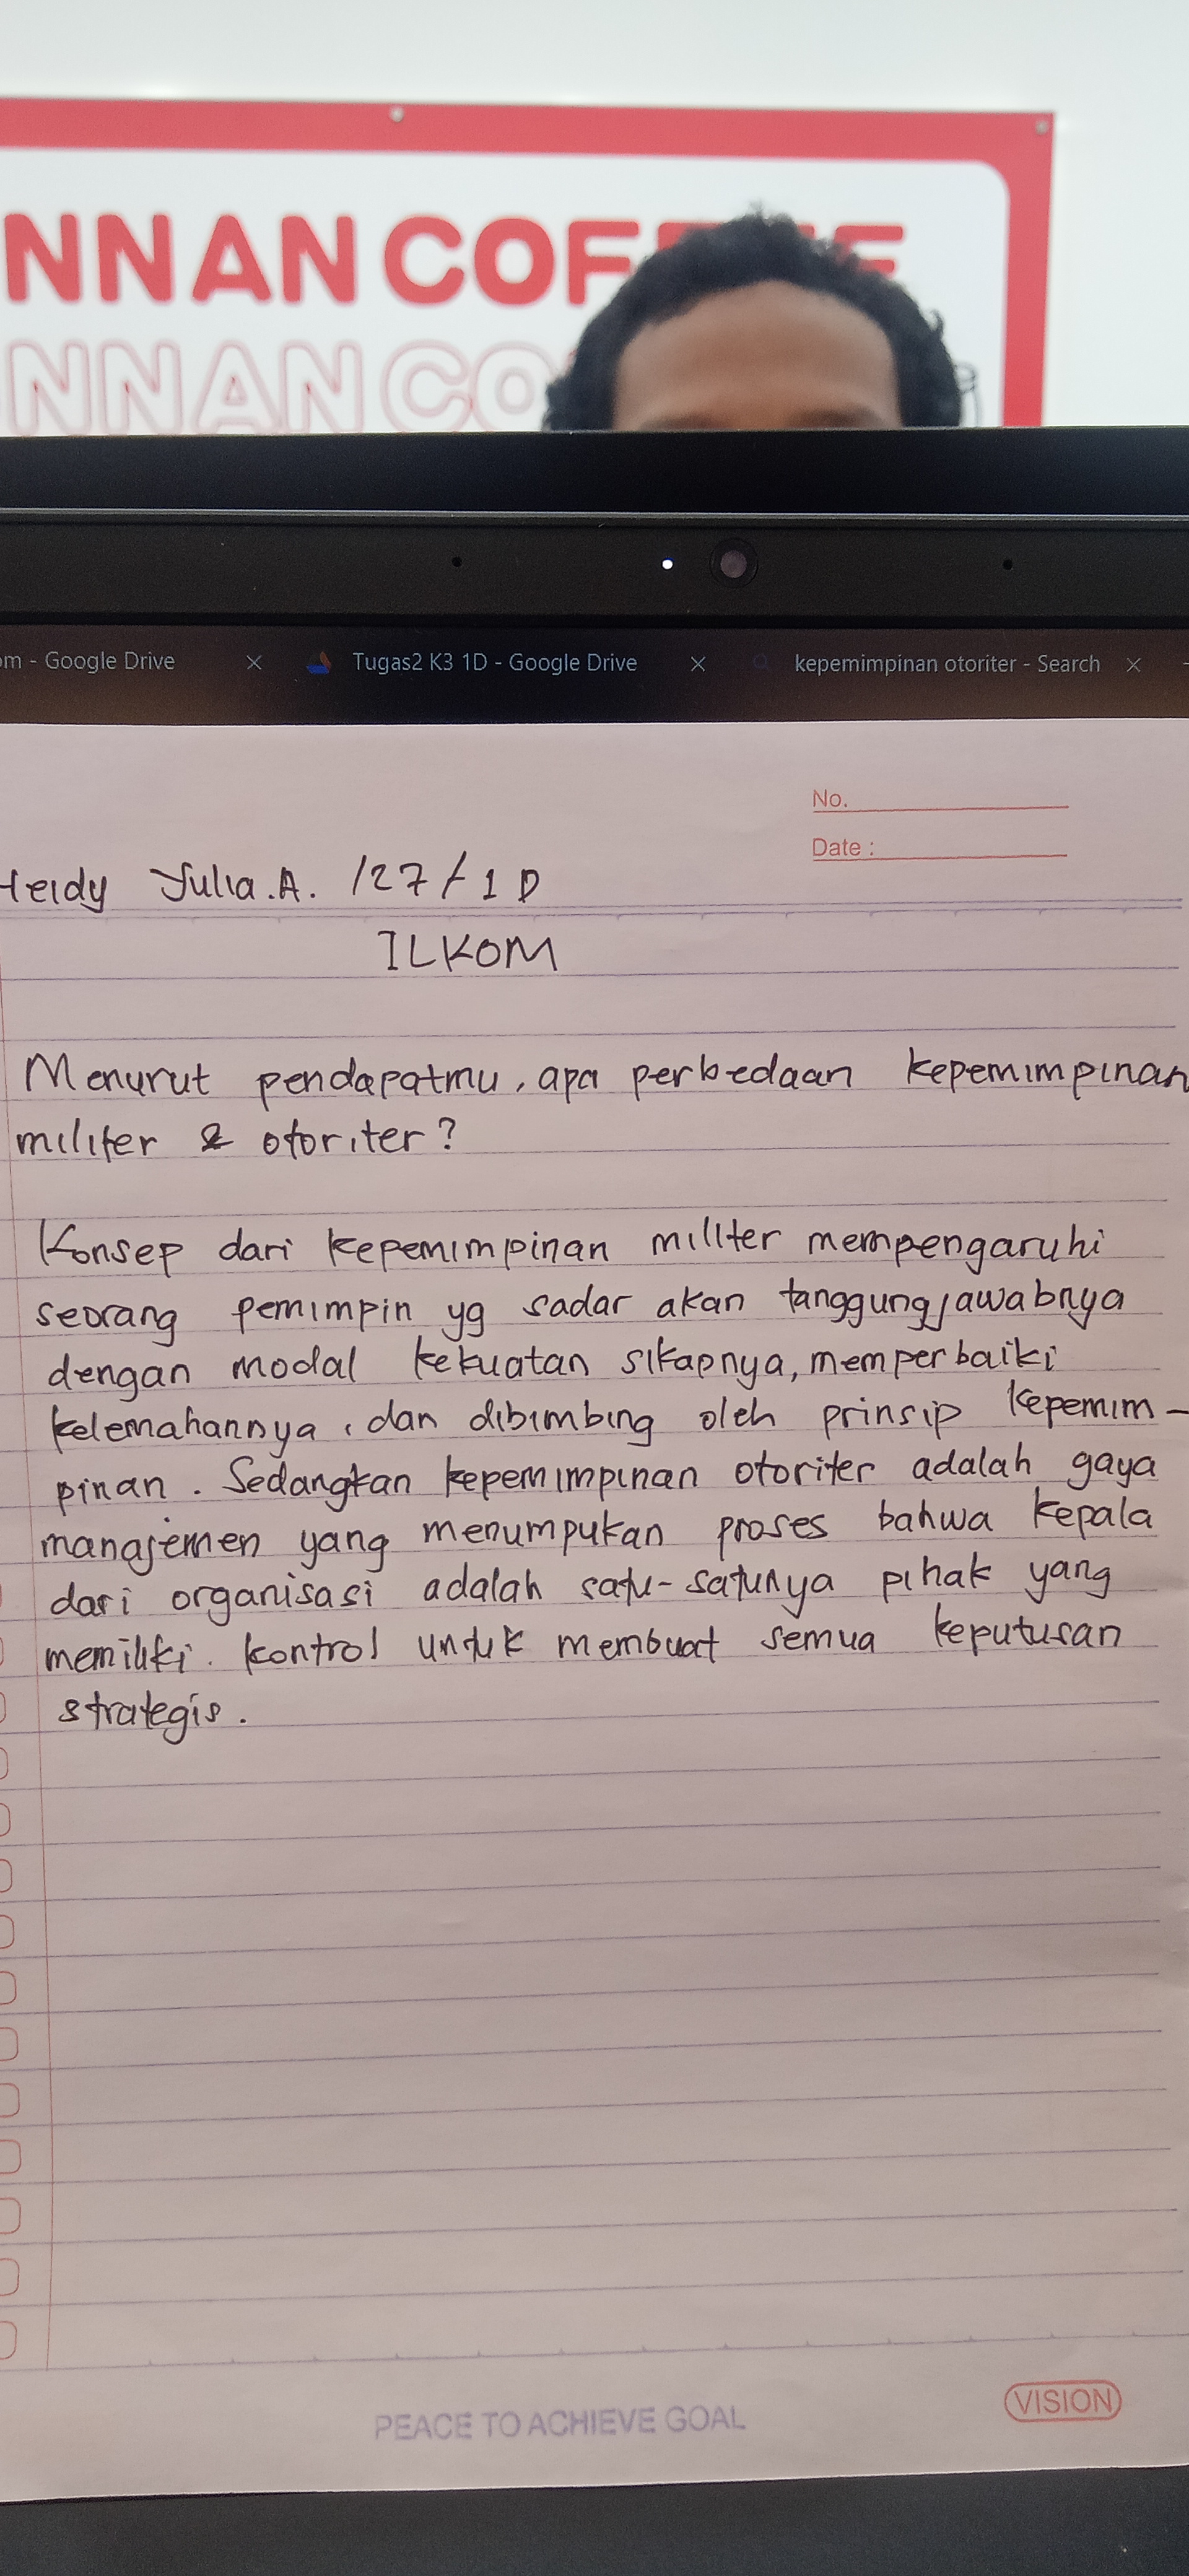 NNAN COF E
NNAN CO
om - Google Drive × Tugas2 K3 1D - Google Drive × kepemimpinan otoriter - Search ×
No.
Date :
Heidy Yulia.A. /27/1D
ILKOM
Menurut pendapatmu, apa perbedaan kepemimpinan
militer & otoriter?
Konsep dari kepemimpinan militer mempengaruhi
seorang pemimpin yg sadar akan tanggungjawabnya
dengan modal kekuatan sikapnya, memperbaiki
kelemahannya, dan dibimbing oleh prinsip kepemim-
pinan. Sedangkan kepemimpinan otoriter adalah gaya
manajemen yang menumpukan proses bahwa kepala
dari organisasi adalah satu-satunya pihak yang
memiliki. kontrol untuk membuat semua keputusan
strategis.
PEACE TO ACHIEVE GOAL
VISION